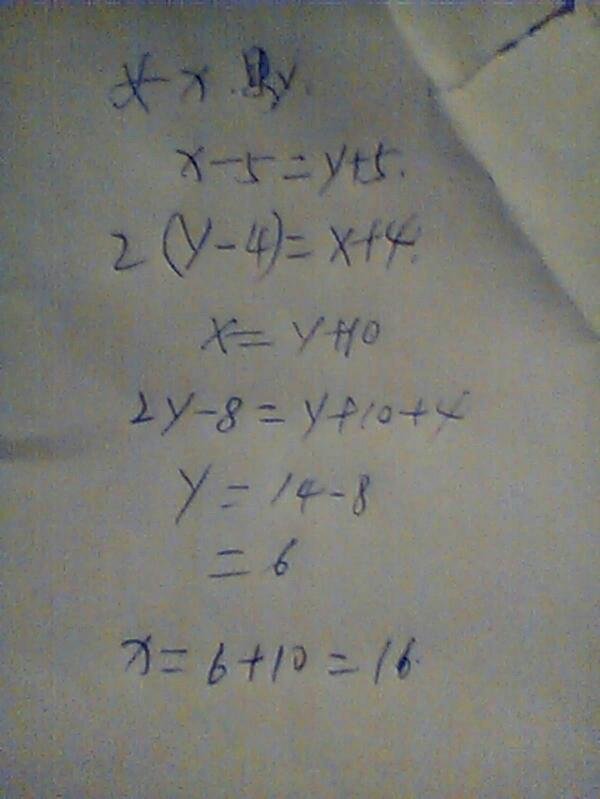 x
x-5=y+5.
2(y-4)=x+4.
x=y+10
2y-8=y+10+4
y=14-8
=6
x=6+10=16.